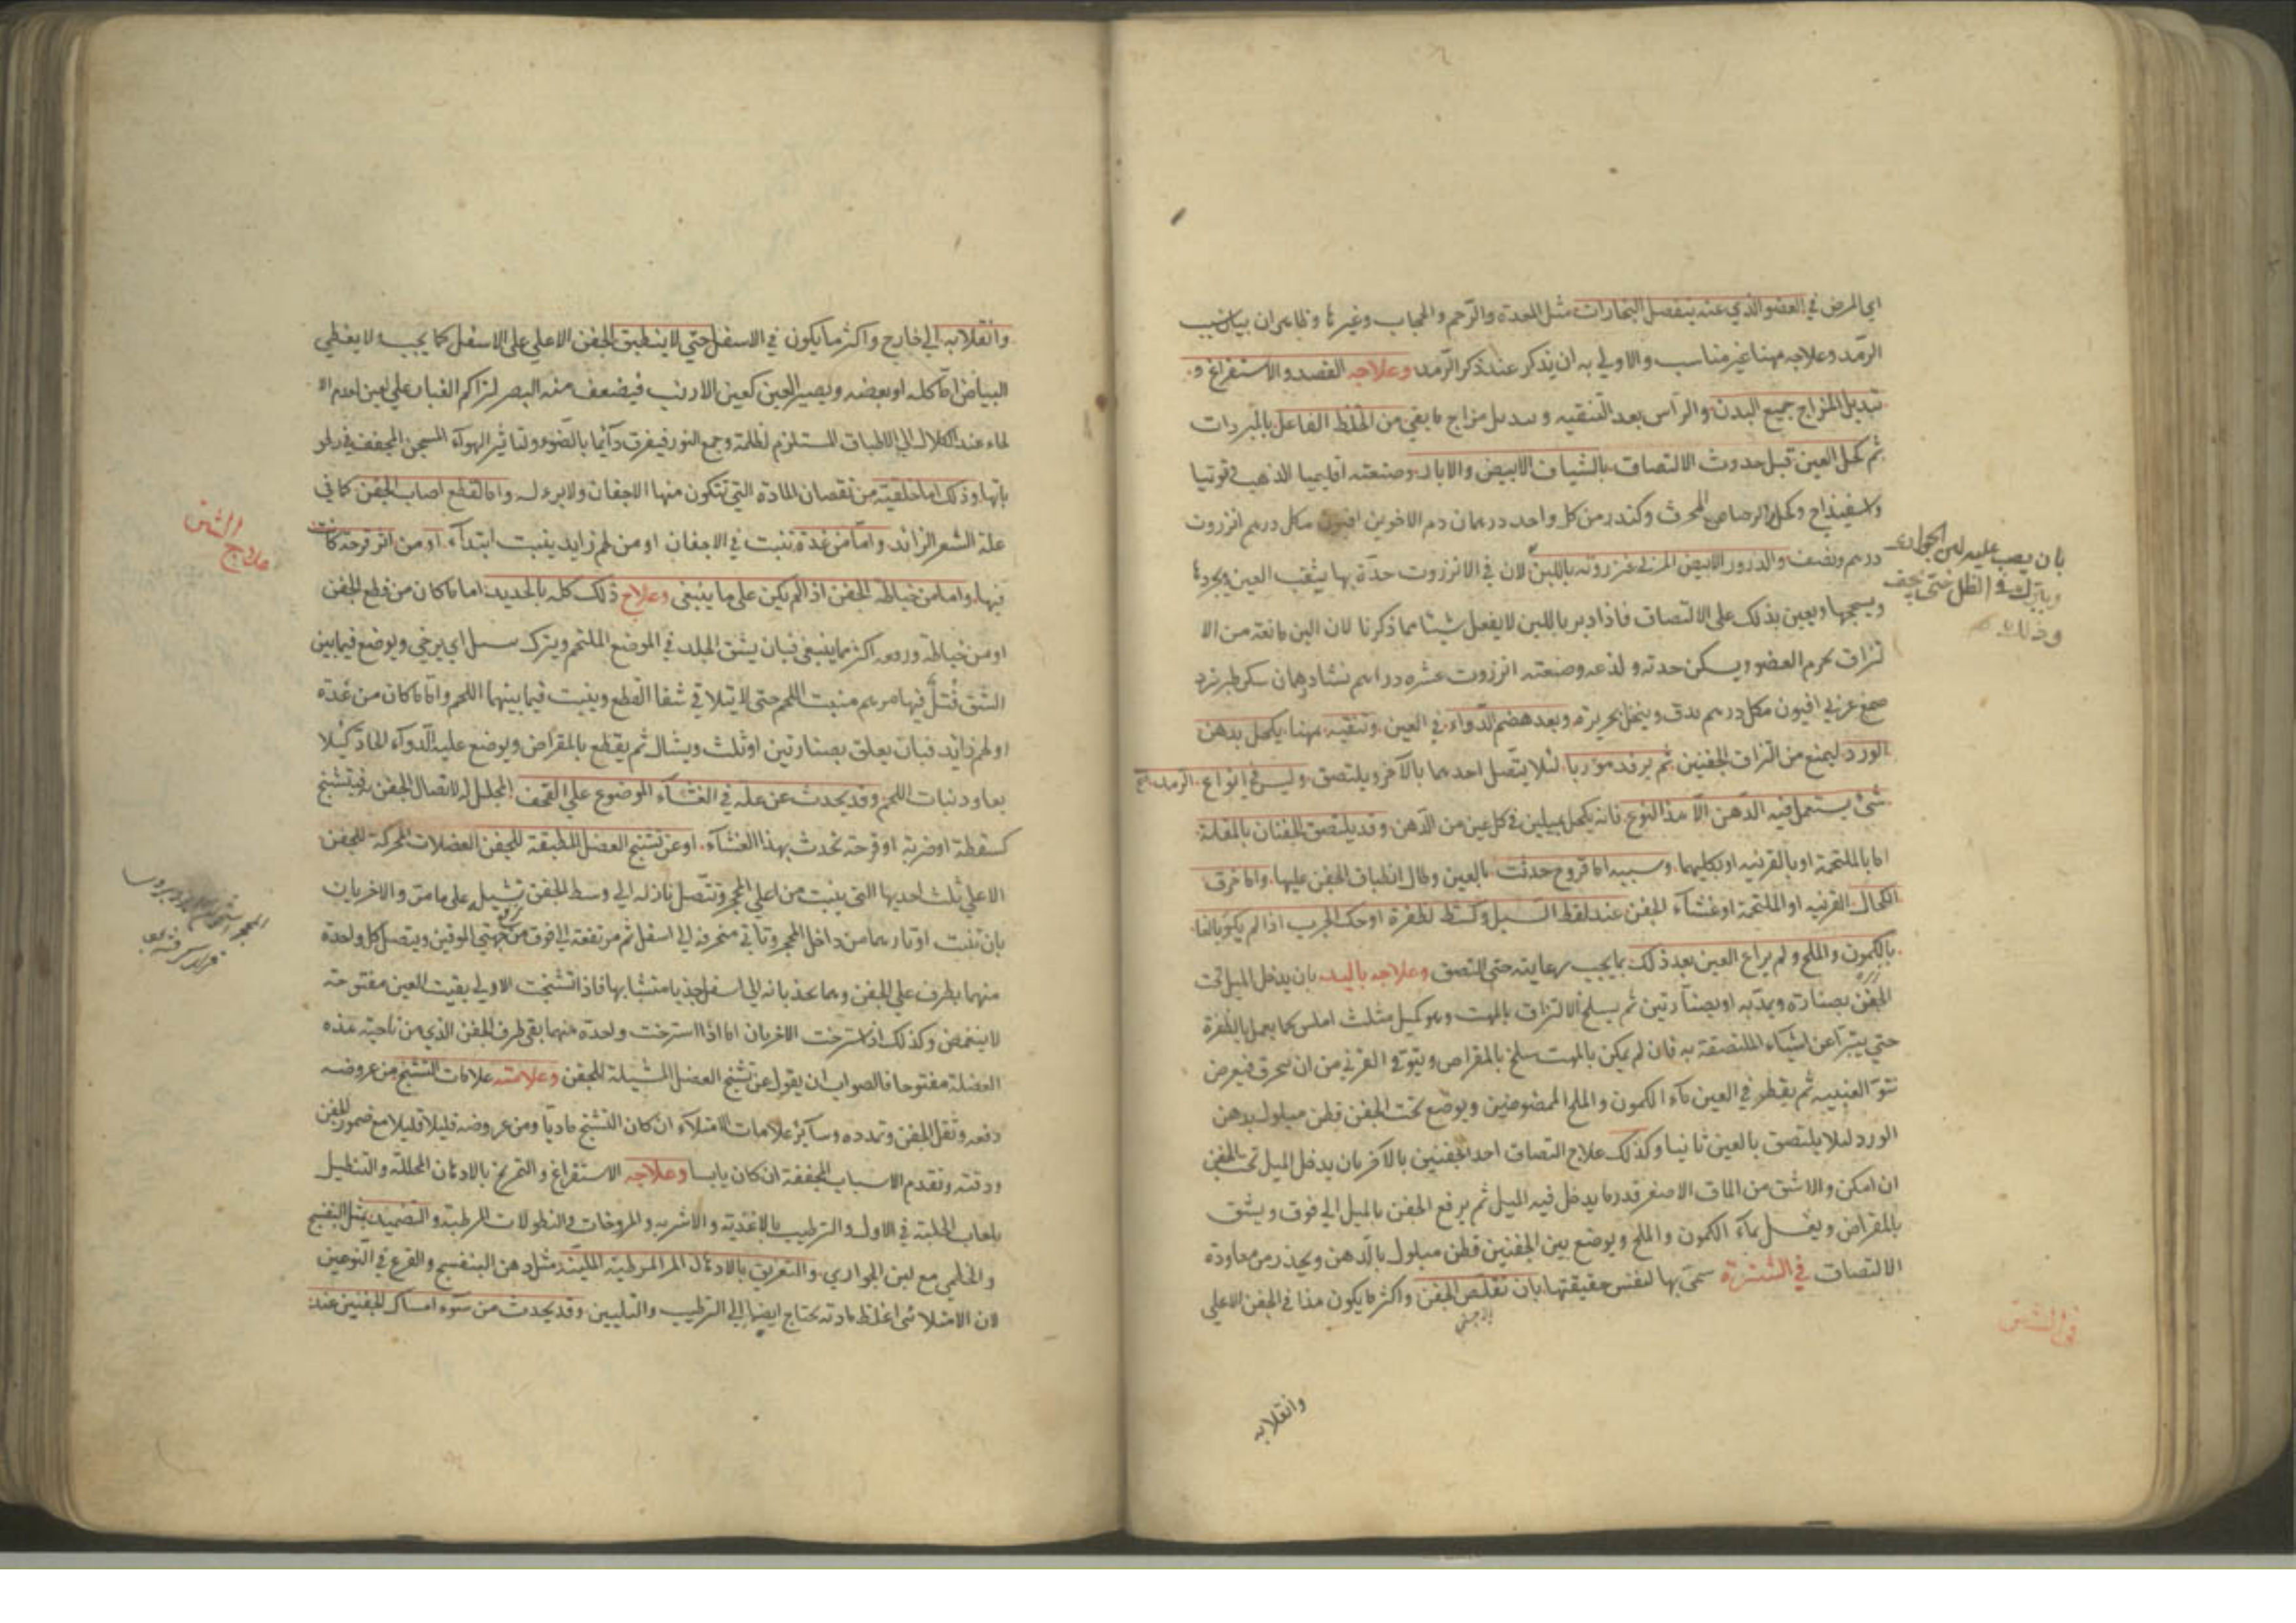 اي المرض في العضو الذي عنه ينفصل البخارات مثل المعدة والرحم والحجاب وغيرها وظاهر ان بيان سبب
الرمد وعلاجه ههنا غير مناسب والاولي به ان يذكر عند ذكر الرمد وعلاجه الفصد والاستفراغ و
تبديل المزاج جميع البدن والراس بعد التنقيه وتبديل مزاج ما بقي من الخلط الفاعل بالمبردات
ثم كحل العين قبل حدوث الالتصاق بالشياف الابيض والابار وصنعته اقليميا الذهب توتيا
واسفيذاج وكحل الرصاص المحرق وكندر من كل واحد درهمان دم الاخوين افيون مكل درهم انزروت
درهم ونصف والذرور الابيض المربى عنزروته باللبن لان في الانزروت حدة بها يثقب العين ويجردها
بان يصب عليه لبن الجواري
ويترك في الظل حتى يجف
وذلك
ويسحجها ويعين بذلك على الالتصاق فاذا دبر باللبن لا يفعل شيئا مما ذكرنا لان اللبن مانعة من الا
لتزاق بجرم العضو ويسكن حدته ولذعه وصنعته انزروت عشره دراهم نشا درهمان سكر طبرزد
صمغ عربي افيون مكل درهم يدق وينخل بحريرة وبعد هضم الدواء في العين وتنقيته مهنا يكحل بدهن
الورد ليمنع من التزاق الجفنين ثم يرفد مؤربا لئلا يتصل احدهما بالآخر ويلتصق وليس في انواع الرمد
شئ يستعمل فيه الدهن الا هذا النوع فانه يكحل بميلين في كل عين من الدهن وقد يلتصق الجفنان بالمقلة
اما بالملتحمة او بالقرنيه او بكليهما وسببه اما قروح حدثت بالعين وطال انطباق الجفن عليها واما خرق
الكحال القرنيه او الملتحمة او غشاء الجفن عند لقط السبل وكشط لظفرة او حك الجرب اذا لم يكو بالغا
بالكمون والملح ولم يراع العين بعد ذلك بما يجب رعايته حتى التصق وعلاجه باليد بان يدخل الميل تحت
الجفن بصنارة ويمد به او بصنارتين ثم يسلخ الالتزاق بالمهت وهو كميل مثلث املس كما يعمل بالظفرة
حتي يتبرا عن اشياء الملتصقة به فان لم يكن بالمهت سلخ بالمقراض ويتوقى القرني من ان ينخرق فيعرض
نتو العنبيه ثم يقطر في العين ماء الكمون والملح الممضوضين ويوضع تحت الجفن قطن مبلول بدهن
الورد لئلا يلتصق بالعين ثانيا وكذلك علاج التصاق احد الجفنين بالآخر بان يدخل الميل تحت الجفن
ان امكن والا شق من الماق الاصغر قدر ما يدخل فيه الميل ثم يرفع الجفن بالميل الي فوق ويشق
بالمقراض ويغسل بماء الكمون والملح ويوضع بين الجفنين قطن مبلول بالدهن ويحذر من معاودة
الالتصاق في الشترة سمي بها لنفس حقيقتها بان تقلص الجفن واكثر ما يكون هذا في الجفن الاعلي
وانقلابه
وانقلابه الي خارج واكثر ما يكون في الاسفل حتي لا ينطبق الجفن الاعلي على الاسفل كما يجب ولا يغطي
البياض اما كله او بعضه ويصير العين كعين الارنب فيضعف منه البصر لتراكم الغبار علي العين لعدم الا
لماء عند الكلال الي الاطباق المستلزم لظلمة وجمع النور فيفرق دائما بالضوء ولتاثير الهواء المسخن المجفف في رطو
باتها وذلك اما خلقية من نقصان المادة التي تتكون منها الاجفان ولا برء له واما لقطع اصاب الجفن كما في
علة الشعر الزائد واما من غدة تنبت في الاجفان او من لحم زايد ينبت ابتداء او من اثر قرحة كانت
علاج الشترة
فيها واما من خياطة الجفن اذا لم يكن على ما ينبغي وعلاج ذلك كله بالحديد اما ما كان من قطع الجفن
او من خياطة ورده اكثر مما ينبغي فبان يشق الجلد في الموضع الملتحم ويترك سبل اي يرخي ويوضع فيما بين
الشق فتل فيها مرهم منبت اللحم حتى لا يتلاقي شفا القطع وينبت فيما بينهما اللحم واما ما كان من غدة
او لحم زائد فبان يعلق بصنارتين او ثلث ويشال ثم يقطع بالمقراض ويوضع عليه الدواء الحاد كيلا
يعاود نبات اللحم وقد يحدث عن علة في الغشاء الموضوع علي القحف المجلل له لاتصال الجفن به فيتشنج
كسقطة او ضربة او قرحة تحدث بهذا الغشاء او عن تشنج العضل المطبقة للجفن العضلات المحركة للجفن
الاعلي ثلث احديها التي ينبت من اعلي المحجر وتتصل نازله الي وسط الجفن تشيل علي ما مر والاخريان
بان تنبت اوتارهما من داخل المحجر وتاتي منحرفه الي اسفل ثم مرتفعة الي فوق من جهتي الموقين ويتصل كل واحدة
منهما بطرف علي الجفن وهما يجذبانه الي اسفل جذبا متشابها فاذا تشنجت الاولي بقيت العين مفتوحة
لا ينغمض وكذلك اذا استرخت الاخريان اما اذا استرخت واحدة منهما بقي طرف الجفن الذي من ناحية هذه
العضلة مفتوحا فالصواب ان يقول عن تشنج العضل المشيلة للجفن وعلامته علامات التشنج من عروضه
دفعه وثقل الجفن وتمدده وسائر علامات الامتلاء ان كان التشنج ماديا ومن عروضه قليلا قليلا مع ضمور الجفن
ودقته وتقدم الاسباب المجففة ان كان يابسا وعلاجه الاستفراغ والتمريخ بالادهان المحللة والتنطيل
بلعاب الحلبة في الاول والترطيب بالاغذية والاشربه والمروخات والنطولات المرطبة والتضميد بمثل البنفسج
والخطمي مع لبن الجواري والتعريق بالادهان المرطبة الملينة مثل دهن البنفسج والقرع في النوعين
لان الامتلائي اغلظ مادته يحتاج ايضا الي الترطيب والتليين وقد يحدث من سوء امساك الجفنين عند